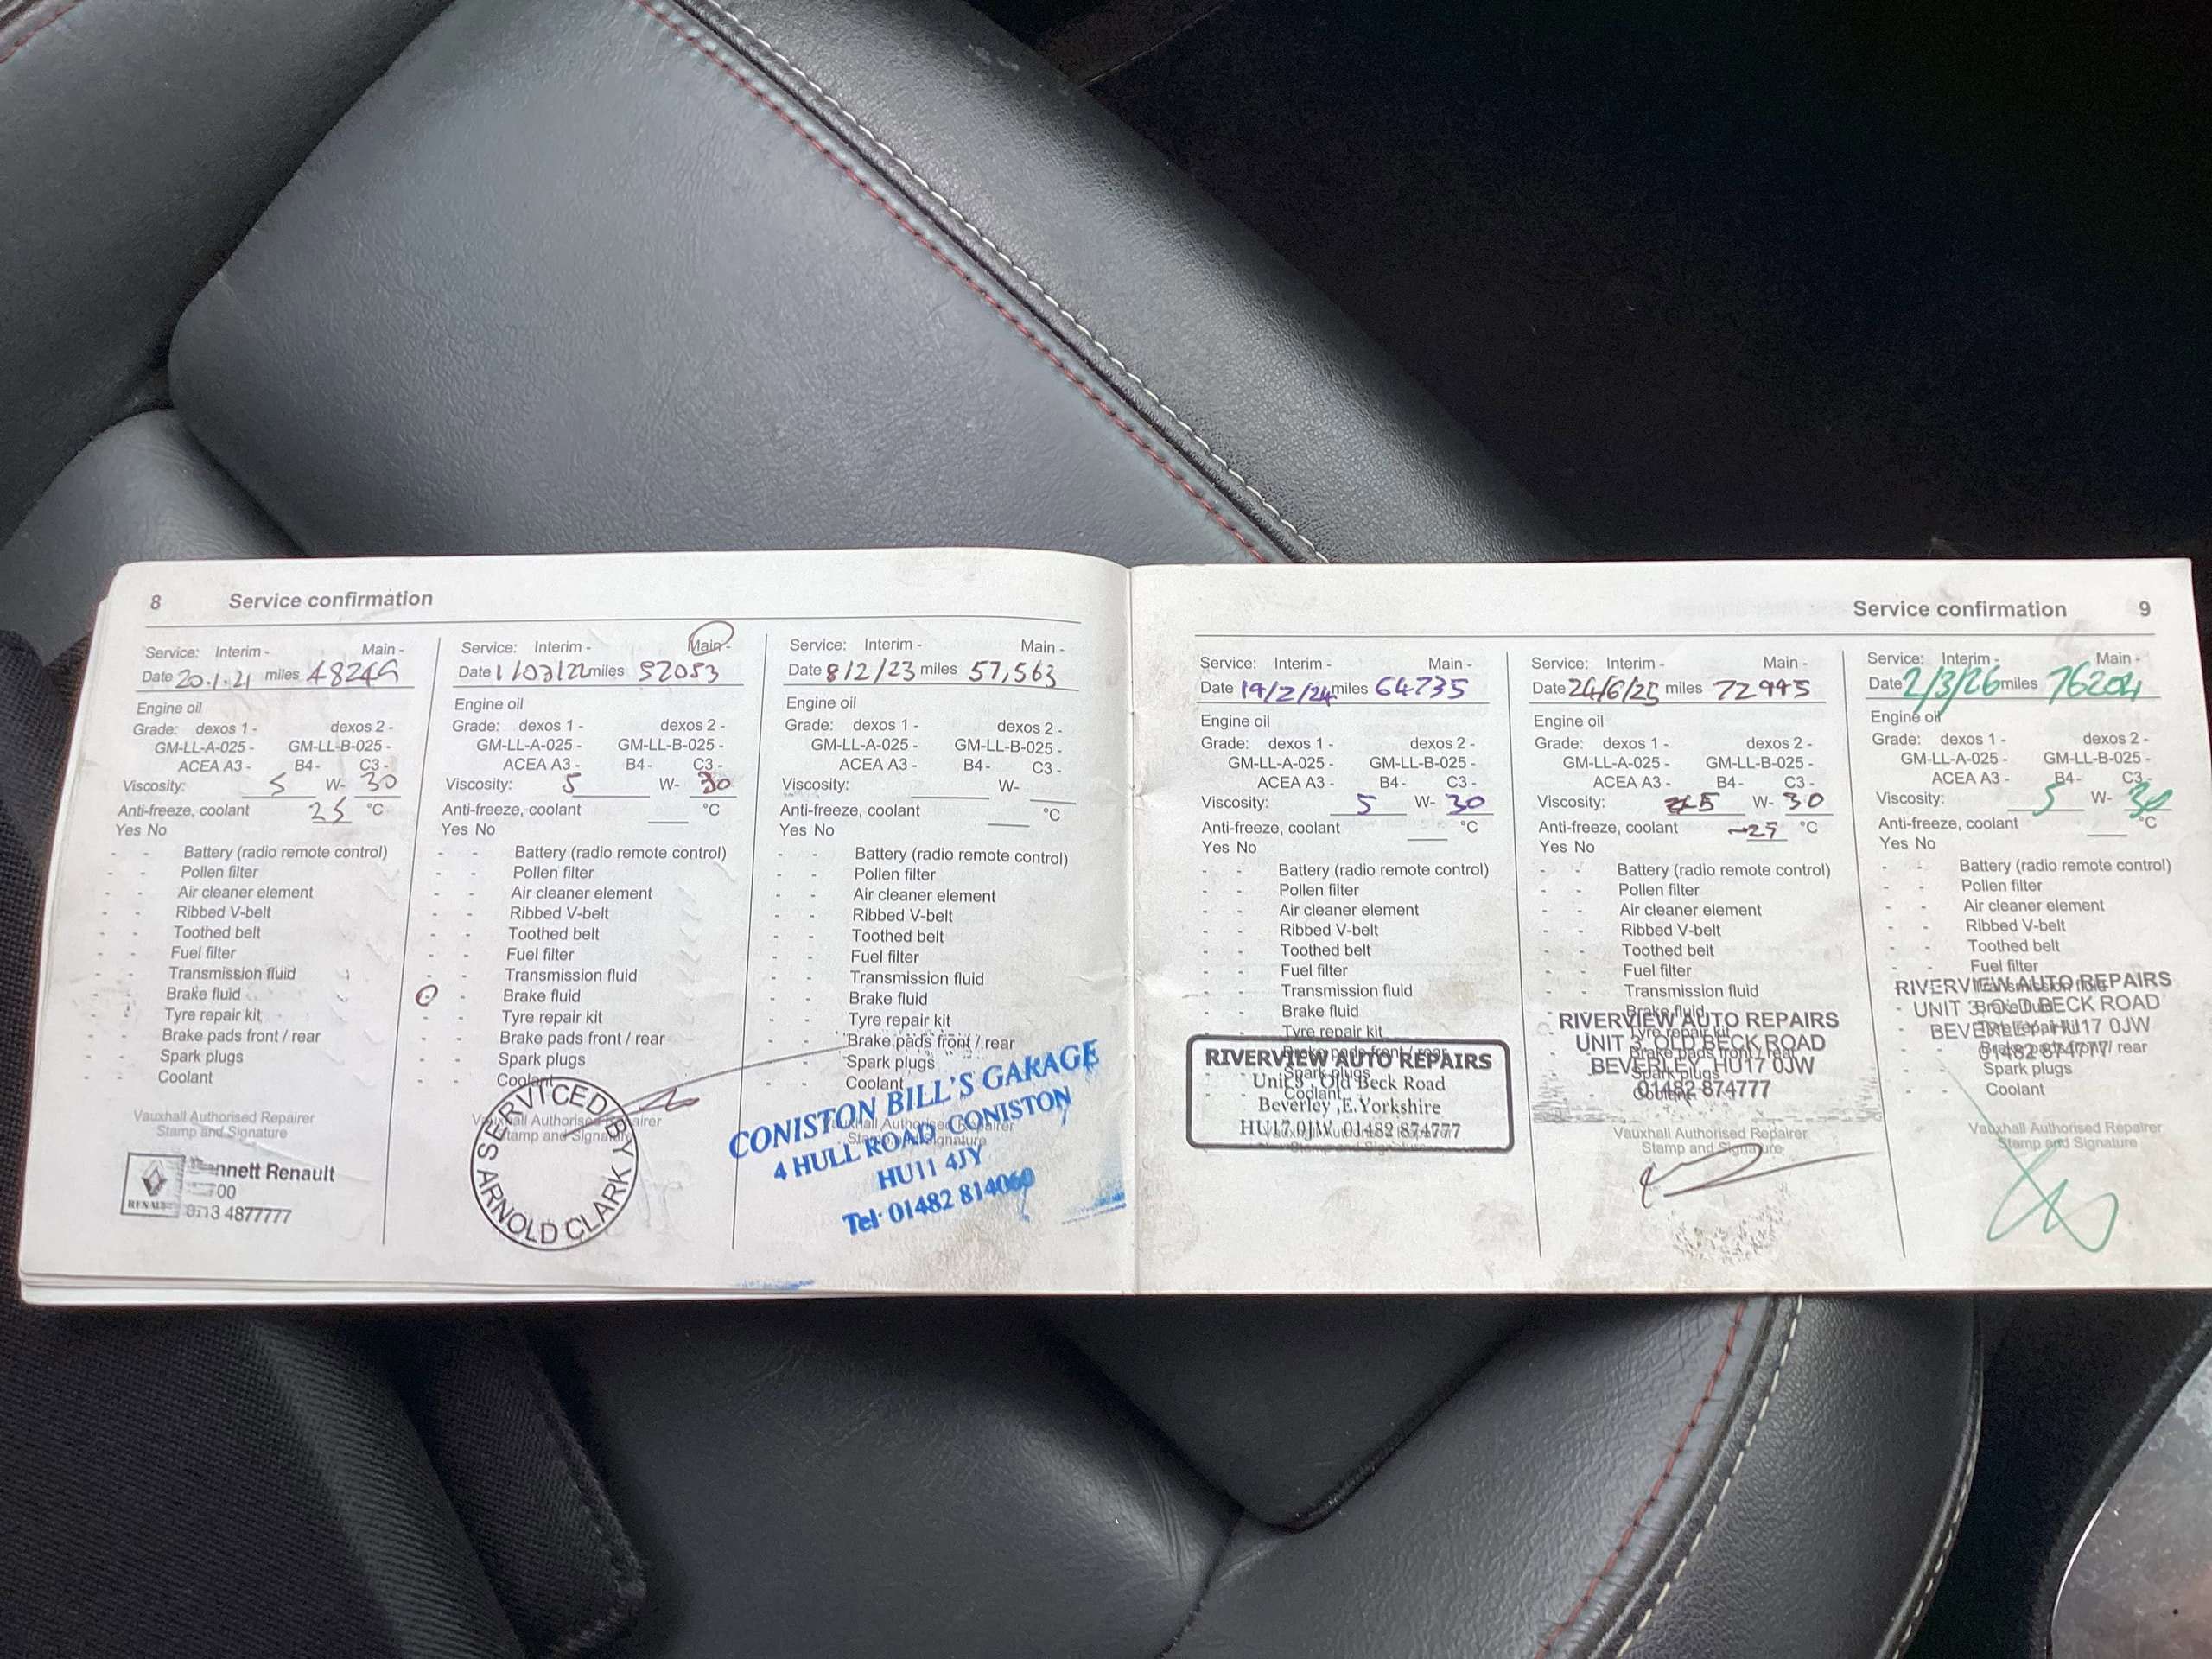 8 Service confirmation
Service: Interim - Main -
Date 20.1.21 miles 48249
Engine oil
Grade: dexos 1 - dexos 2 -
GM-LL-A-025 - GM-LL-B-025 -
ACEA A3 - B4 - C3 -
Viscosity: 5 W- 30
Anti-freeze, coolant 25 °C
Yes No
- - Battery (radio remote control)
- - Pollen filter
- - Air cleaner element
- - Ribbed V-belt
- - Toothed belt
- - Fuel filter
- - Transmission fluid
- - Brake fluid
- - Tyre repair kit
- - Brake pads front / rear
- - Spark plugs
- - Coolant
Vauxhall Authorised Repairer
Stamp and Signature
Renault
RENAULT
0113 4877777
Service: Interim - Main -
Date 1/03/22 miles 52053
Engine oil
Grade: dexos 1 - dexos 2 -
GM-LL-A-025 - GM-LL-B-025 -
ACEA A3 - B4 - C3 -
Viscosity: 5 W- 30
Anti-freeze, coolant °C
Yes No
- - Battery (radio remote control)
- - Pollen filter
- - Air cleaner element
- - Ribbed V-belt
- - Toothed belt
- - Fuel filter
- - Transmission fluid
- - Brake fluid
- - Tyre repair kit
- - Brake pads front / rear
- - Spark plugs
- - Coolant
Vauxhall Authorised Repairer
Stamp and Signature
SERVICED BY
ARNOLD CLARK
Service: Interim - Main -
Date 8/2/23 miles 57,563
Engine oil
Grade: dexos 1 - dexos 2 -
GM-LL-A-025 - GM-LL-B-025 -
ACEA A3 - B4 - C3 -
Viscosity: W-
Anti-freeze, coolant °C
Yes No
- - Battery (radio remote control)
- - Pollen filter
- - Air cleaner element
- - Ribbed V-belt
- - Toothed belt
- - Fuel filter
- - Transmission fluid
- - Brake fluid
- - Tyre repair kit
- - Brake pads front / rear
- - Spark plugs
- - Coolant
Vauxhall Authorised Repairer
Stamp and Signature
CONISTON BILL'S GARAGE
4 HULL ROAD CONISTON
HU11 4JY
Tel: 01482 814060
Service confirmation 9
Service: Interim - Main -
Date 19/2/24 miles 64735
Engine oil
Grade: dexos 1 - dexos 2 -
GM-LL-A-025 - GM-LL-B-025 -
ACEA A3 - B4 - C3 -
Viscosity: 5 W- 30
Anti-freeze, coolant °C
Yes No
- - Battery (radio remote control)
- - Pollen filter
- - Air cleaner element
- - Ribbed V-belt
- - Toothed belt
- - Fuel filter
- - Transmission fluid
- - Brake fluid
- - Tyre repair kit
- - Brake pads front / rear
- - Spark plugs
- - Coolant
RIVERVIEW AUTO REPAIRS
Unit 3, Old Beck Road
Beverley ,E.Yorkshire
HU17 0JW 01482 874777
Service: Interim - Main -
Date 24/6/25 miles 72995
Engine oil
Grade: dexos 1 - dexos 2 -
GM-LL-A-025 - GM-LL-B-025 -
ACEA A3 - B4 - C3 -
Viscosity: 5 W- 30
Anti-freeze, coolant -25 °C
Yes No
- - Battery (radio remote control)
- - Pollen filter
- - Air cleaner element
- - Ribbed V-belt
- - Toothed belt
- - Fuel filter
- - Transmission fluid
- - Brake fluid
- - Tyre repair kit
- - Brake pads front / rear
- - Spark plugs
- - Coolant
RIVERVIEW AUTO REPAIRS
UNIT 3, OLD BECK ROAD
BEVERLEY, HU17 0JW
01482 874777
Vauxhall Authorised Repairer
Stamp and Signature
Service: Interim - Main -
Date 2/3/26 miles 76204
Engine oil
Grade: dexos 1 - dexos 2 -
GM-LL-A-025 - GM-LL-B-025 -
ACEA A3 - B4 - C3 -
Viscosity: 5 W- 30
Anti-freeze, coolant °C
Yes No
- - Battery (radio remote control)
- - Pollen filter
- - Air cleaner element
- - Ribbed V-belt
- - Toothed belt
- - Fuel filter
- - Transmission fluid
- - Brake fluid
- - Tyre repair kit
- - Brake pads front / rear
- - Spark plugs
- - Coolant
RIVERVIEW AUTO REPAIRS
UNIT 3, OLD BECK ROAD
BEVERLEY, HU17 0JW
01482 874777
Vauxhall Authorised Repairer
Stamp and Signature